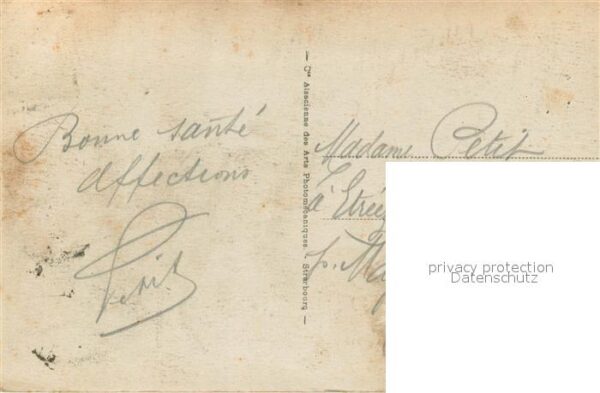 Bonne santé
affections
Petit
— Cie Alsacienne des Arts Photomécaniques - Strasbourg —
Madame Petit
à
p.
privacy protection
Datenschutz